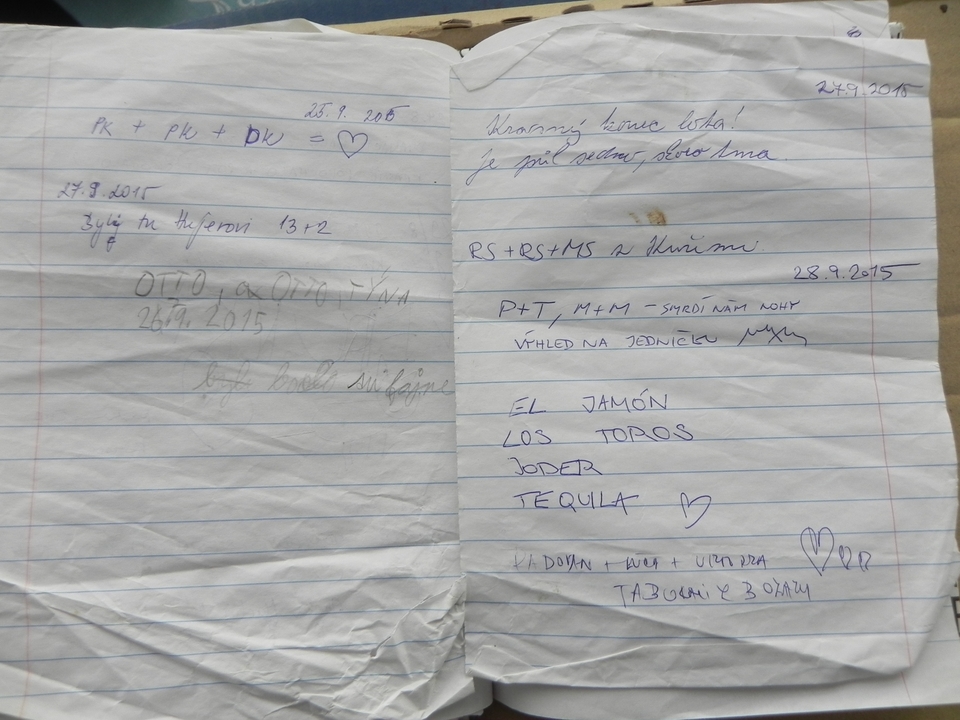 25.9. 2015
PK + PK + DK = ♡
27.9.2015
Byli tu Hujerovi 13+2
OTTO, a OTTO, TÝNA
26.9. 2015
27.9.2015
Krásný konec léta!
je půl sedmé, skoro tma.
RS+RS+MS z Kuřimi
28.9.2015
P+T, M+M – SMRDÍ NÁM NOHY
VÝHLED NA JEDNIČKU
EL JAMÓN
LOS TOROS
JODER
TEQUILA ♡